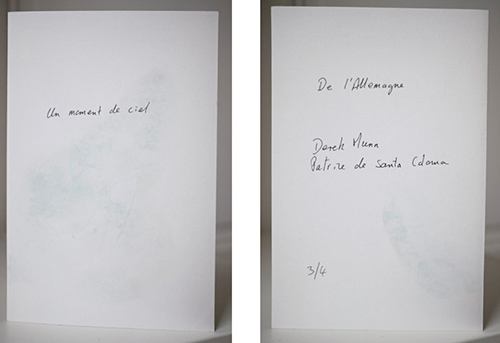 Un moment de ciel
De l'Allemagne
Derek Munn
Patrice de Santa Coloma
3/4